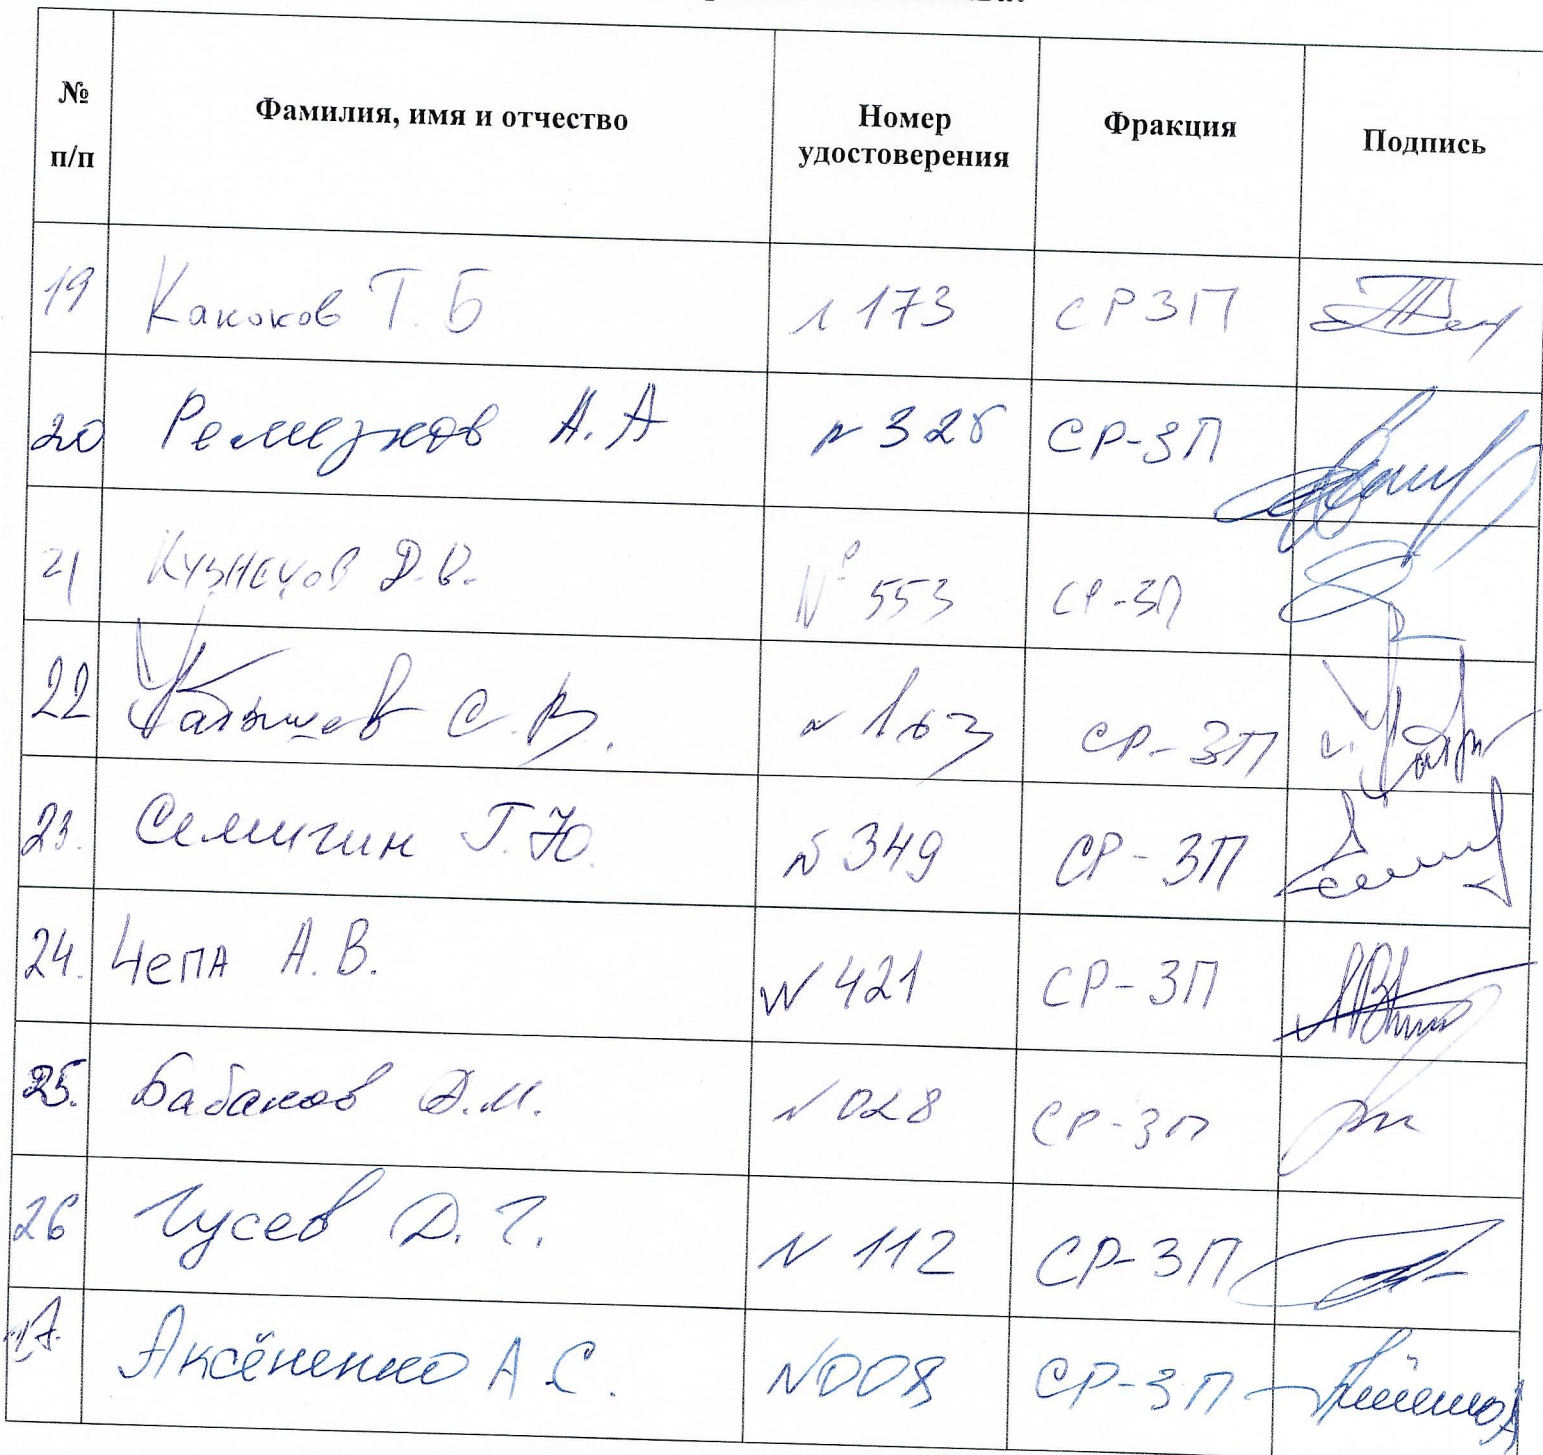 № п/п Фамилия, имя и отчество Номер удостоверения Фракция Подпись
19 Каноков Т. Б 173 СРЗП
20 Ремезков А. А № 326 СР-ЗП
21 Кузнецов Д. В. № 553 СР-ЗП
22 Кабышев С. В. № 163 СР-ЗП
23. Семигин Г. Ю. № 349 СР-ЗП
24. Чепа А. В. N 421 СР-ЗП
25. Бабаков Д. М. N 028 СР-ЗП
26 Гусев Д. Г. N 112 СР-ЗП
Аксёненко А С. N 008 СР-ЗП